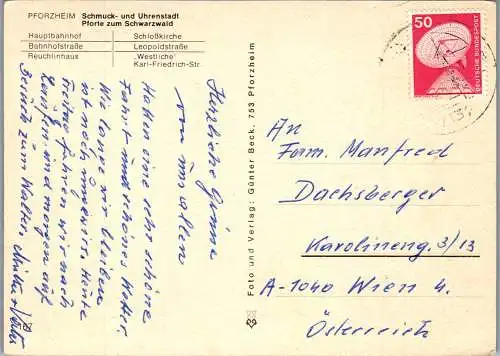 PFORZHEIM Schmuck- und Uhrenstadt
Pforte zum Schwarzwald
Hauptbahnhof Schloßkirche
Bahnhofstraße Leopoldstraße
Reuchlinhaus „Westliche"
Karl-Friedrich-Str.
Herzliche Grüsse
von uns allen
Hatten eine sehr schöne
Fahrt und schönes Wetter.
Wie lange wir bleiben
ist noch ungewiss. Heute
Freitag fahren wir nach
und morgen auf
Besuch zum Walter,
Foto und Verlag: Günter Beck, 753 Pforzheim
50
DEUTSCHE BUNDESPOST
An
Fam. Manfred
Dachsberger
Karolineng. 3/13
A-1040 Wien 4.
Österreich